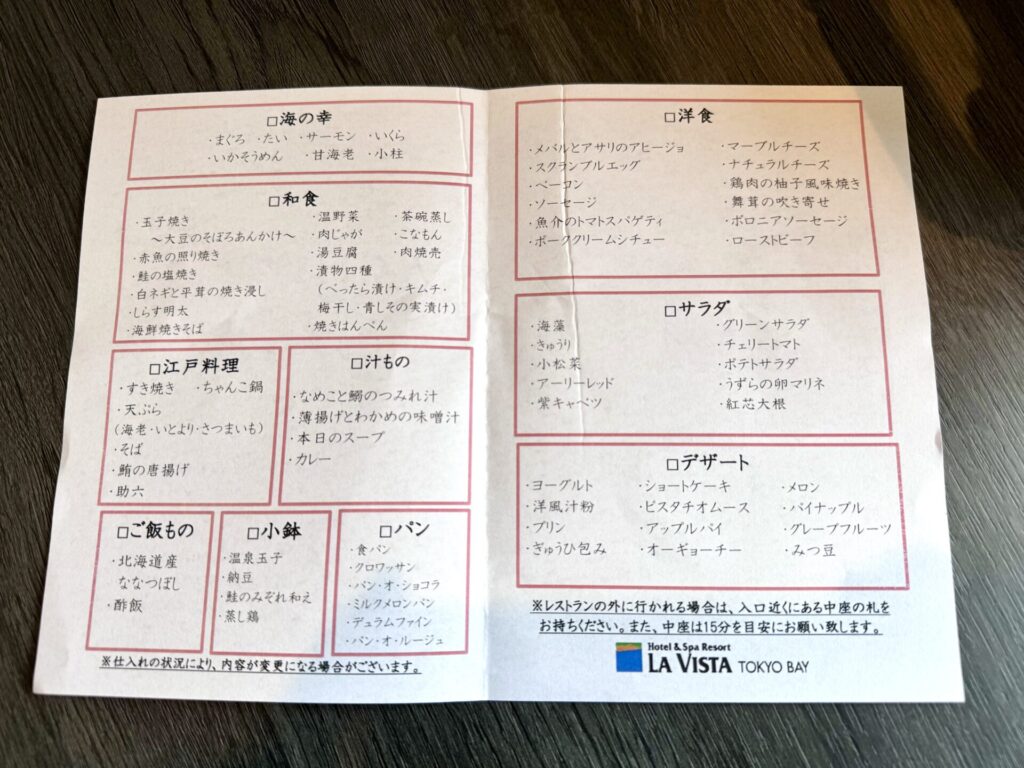 □海の幸
・まぐろ ・たい ・サーモン ・いくら
・いかそうめん ・甘海老 ・小柱
□和食
・玉子焼き
～大豆のそぼろあんかけ～
・赤魚の照り焼き
・鮭の塩焼き
・白ネギと平茸の焼き浸し
・しらす明太
・海鮮焼きそば
・温野菜
・肉じゃが
・湯豆腐
・漬物四種
（べったら漬け・キムチ・
梅干し・青しその実漬け）
・焼きはんぺん
・茶碗蒸し
・こなもん
・肉焼売
□江戸料理
・すき焼き ・ちゃんこ鍋
・天ぷら
（海老・いとより・さつまいも）
・そば
・鮪の唐揚げ
・助六
□汁もの
・なめこと鰯のつみれ汁
・薄揚げとわかめの味噌汁
・本日のスープ
・カレー
□ご飯もの
・北海道産
ななつぼし
・酢飯
□小鉢
・温泉玉子
・納豆
・鮭のみぞれ和え
・蒸し鶏
□パン
・食パン
・クロワッサン
・パン・オ・ショコラ
・ミルクメロンパン
・デュラムファイン
・パン・オ・ルージュ
※仕入れの状況により、内容が変更になる場合がございます。
□洋食
・メバルとアサリのアヒージョ
・スクランブルエッグ
・ベーコン
・ソーセージ
・魚介のトマトスパゲティ
・ポーククリームシチュー
・マーブルチーズ
・ナチュラルチーズ
・鶏肉の柚子風味焼き
・舞茸の吹き寄せ
・ボロニアソーセージ
・ローストビーフ
□サラダ
・海藻
・きゅうり
・小松菜
・アーリーレッド
・紫キャベツ
・グリーンサラダ
・チェリートマト
・ポテトサラダ
・うずらの卵マリネ
・紅芯大根
□デザート
・ヨーグルト
・洋風汁粉
・プリン
・ぎゅうひ包み
・ショートケーキ
・ピスタチオムース
・アップルパイ
・オーギョーチー
・メロン
・パイナップル
・グレープフルーツ
・みつ豆
※レストランの外に行かれる場合は、入口近くにある中座の札を
お持ちください。また、中座は15分を目安にお願い致します。
Hotel & Spa Resort
LA VISTA TOKYO BAY